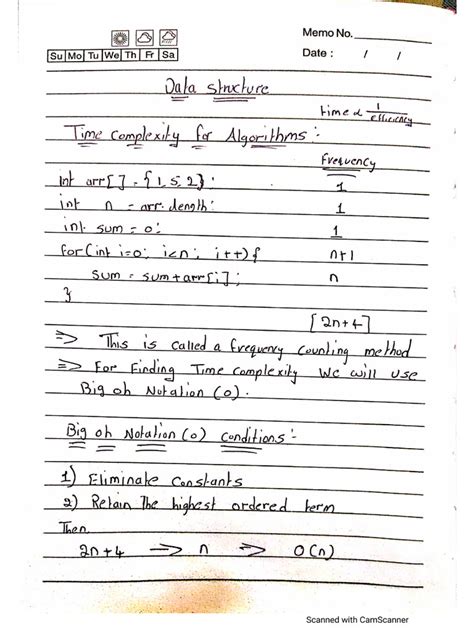 Memo No.
Su Mo Tu We Th Fr Sa
Date : / /
Data Structure
time α 1/efficiency
Time complexity for Algorithms :
frequency
int arr[] = {1, 5, 2}; 1
int n = arr.length; 1
int sum = 0; 1
for(int i=0; i<n; i++){ n+1
sum = sum+arr[i]; n
}
[2n+4]
=> This is called a frequency counting method
=> For Finding Time complexity We will use
Big oh Notation (o).
Big oh Notation (o) conditions :-
1) Eliminate Constants
2) Retain The highest ordered term
Then
2n+4 —> n => O(n)
Scanned with CamScanner